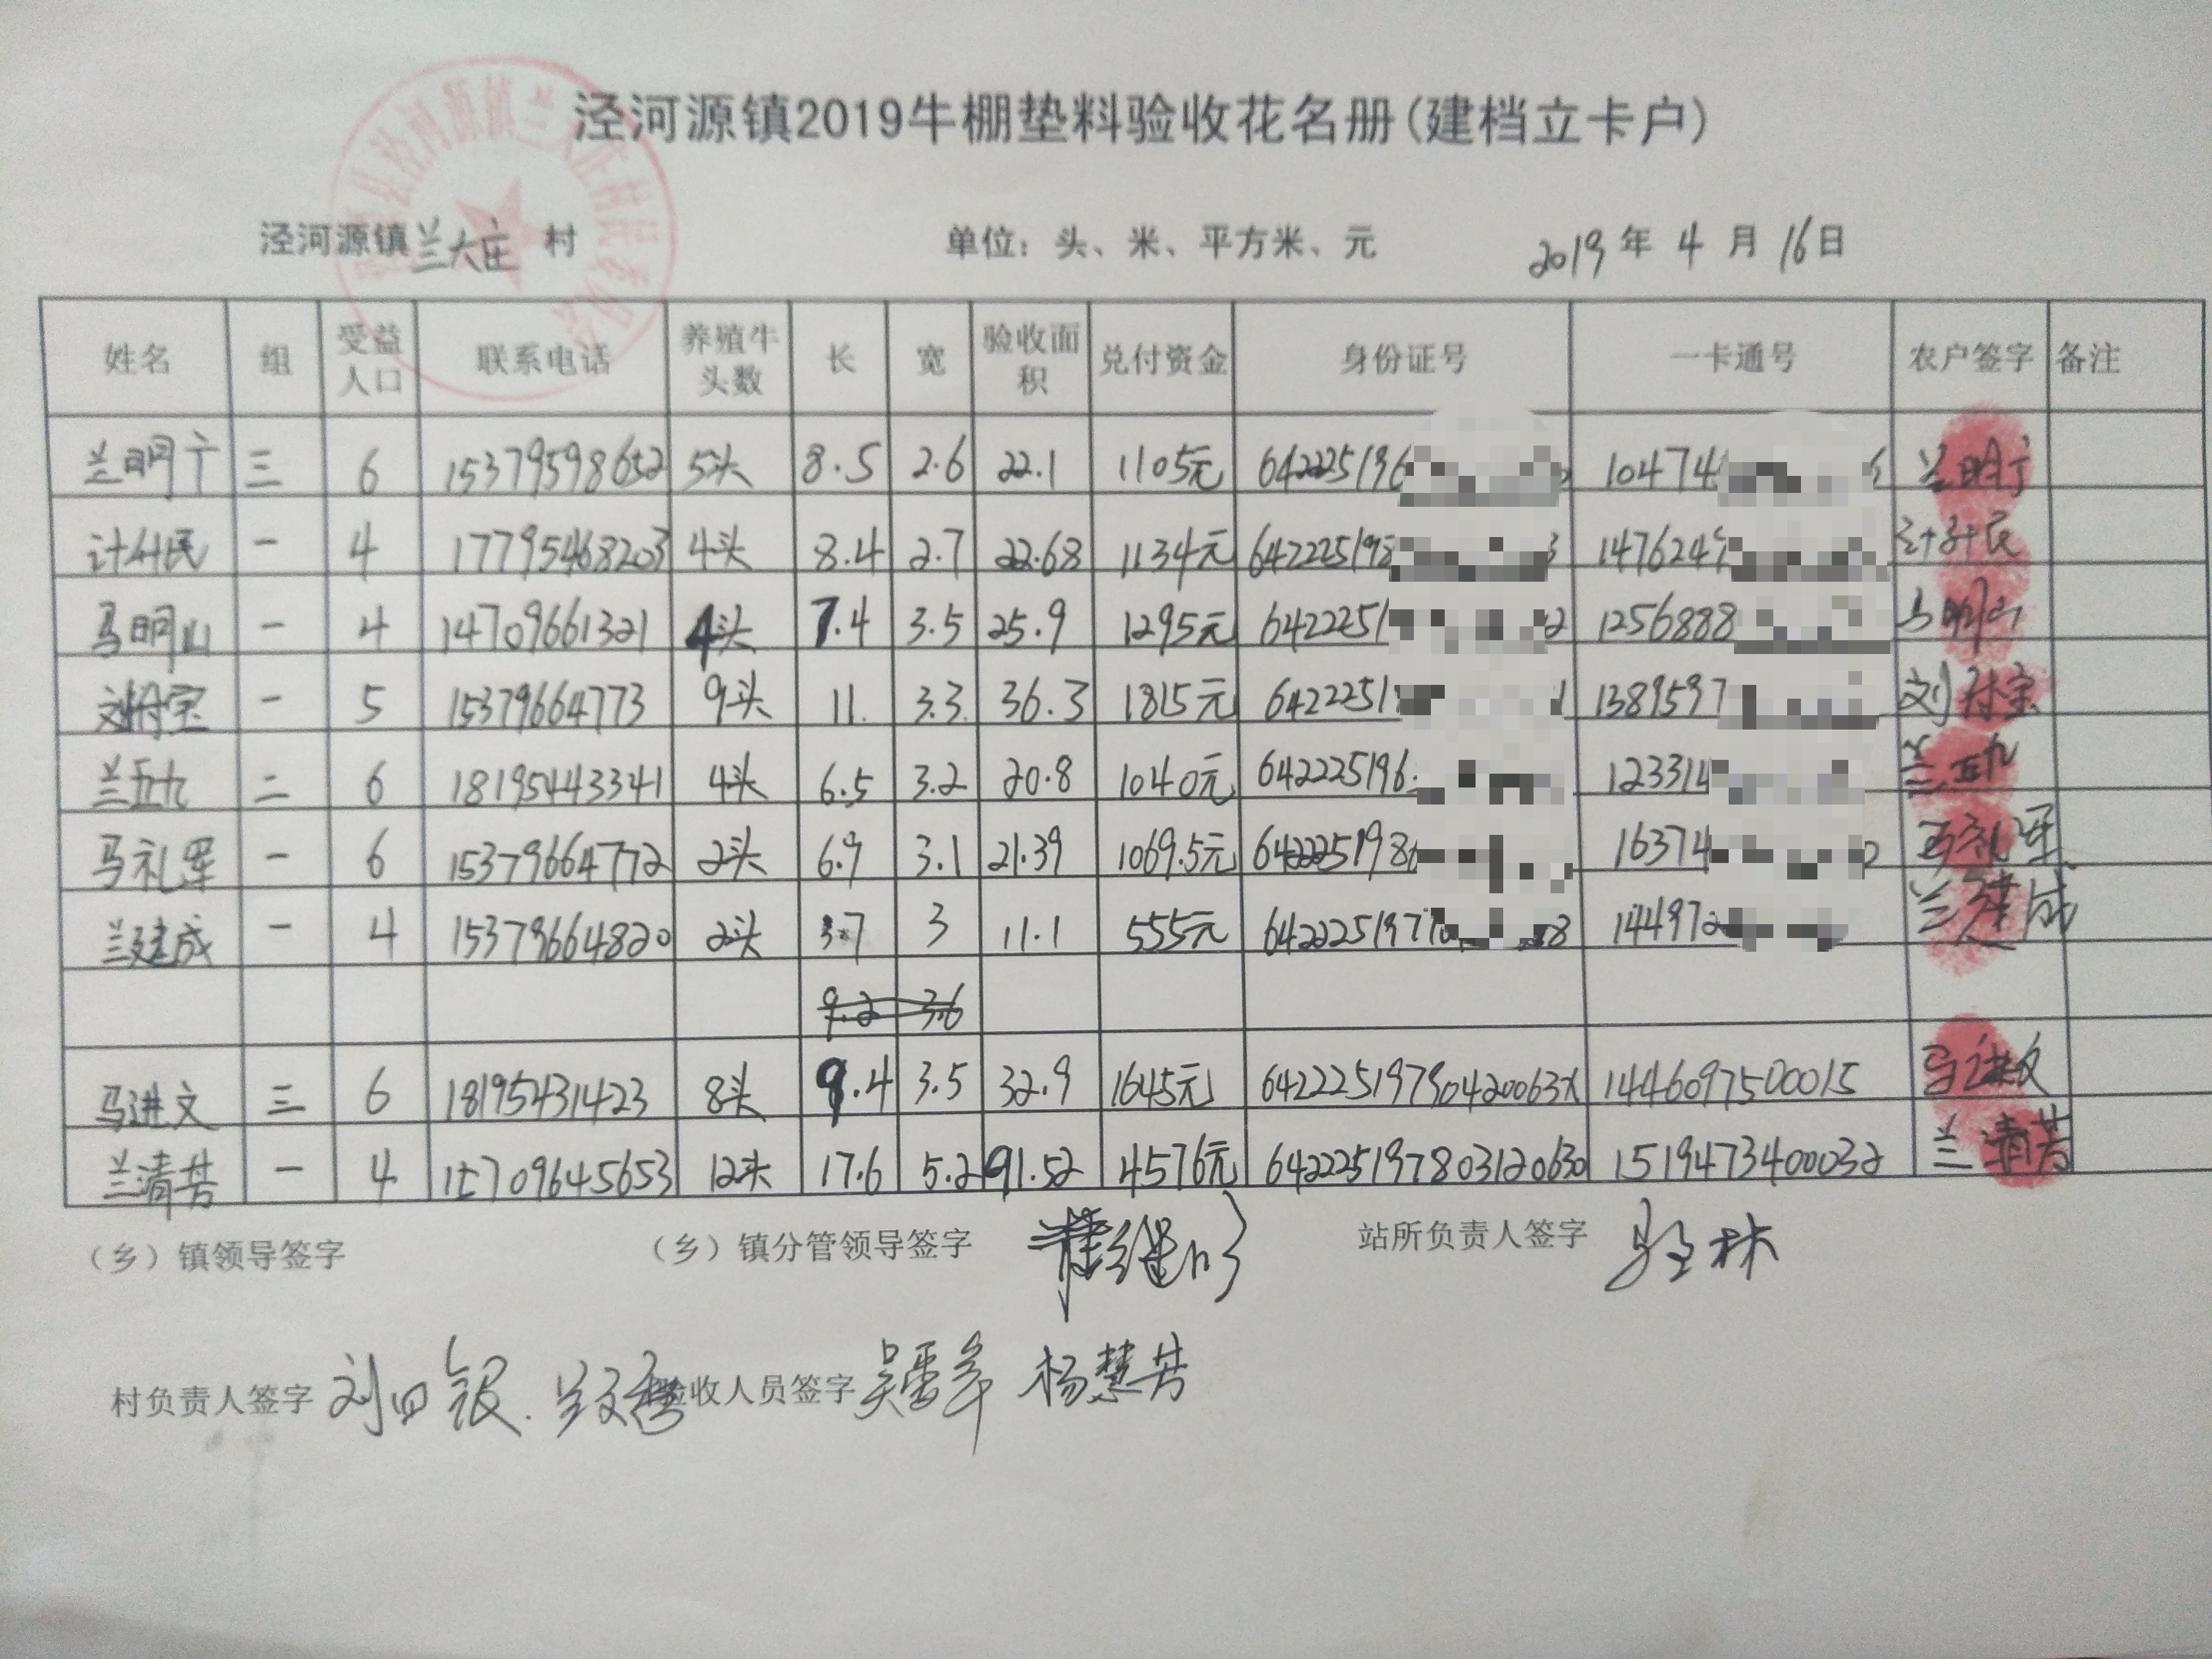 泾河源镇2019牛棚垫料验收花名册(建档立卡户)
泾河源镇兰大庄村 单位：头、米、平方米、元 2019年4月16日
姓名 组 受益人口 联系电话 养殖牛头数 长 宽 验收面积 兑付资金 身份证号 一卡通号 农户签字 备注
兰明宁 三 6 15379598652 5头 8.5 2.6 22.1 1105元 642225196 104741 兰明宁
计 民 一 4 17795468203 4头 8.4 2.7 22.68 1134元 642225198 3 1476249 计 民
马明山 一 4 14709661321 4头 7.4 3.5 25.9 1295元 6422251 2 1256888 马明山
刘付宝 一 5 15379664773 9头 11 3.3 36.3 1815元 6422251 1 1389597 刘付宝
兰五九 二 6 18195443341 4头 6.5 3.2 20.8 1040元 642225196 123314 兰五九
马礼军 一 6 15379664772 2头 6.9 3.1 21.39 1069.5元 642225198 16374 2 马礼军
兰建成 一 4 15379664820 2头 3.7 3 11.1 555元 642225197 8 144972 兰建成
9.2 3.6
马进文 三 6 18195431423 8头 9.4 3.5 32.9 1645元 64222519790420063X 1446097500015 马进文
兰清芳 一 4 15709645653 12头 17.6 5.2 91.52 4576元 642225197803120630 1519473400032 兰清芳
（乡）镇领导签字 （乡）镇分管领导签字 站所负责人签字
村负责人签字 刘四银 验收人员签字 杨慧芳